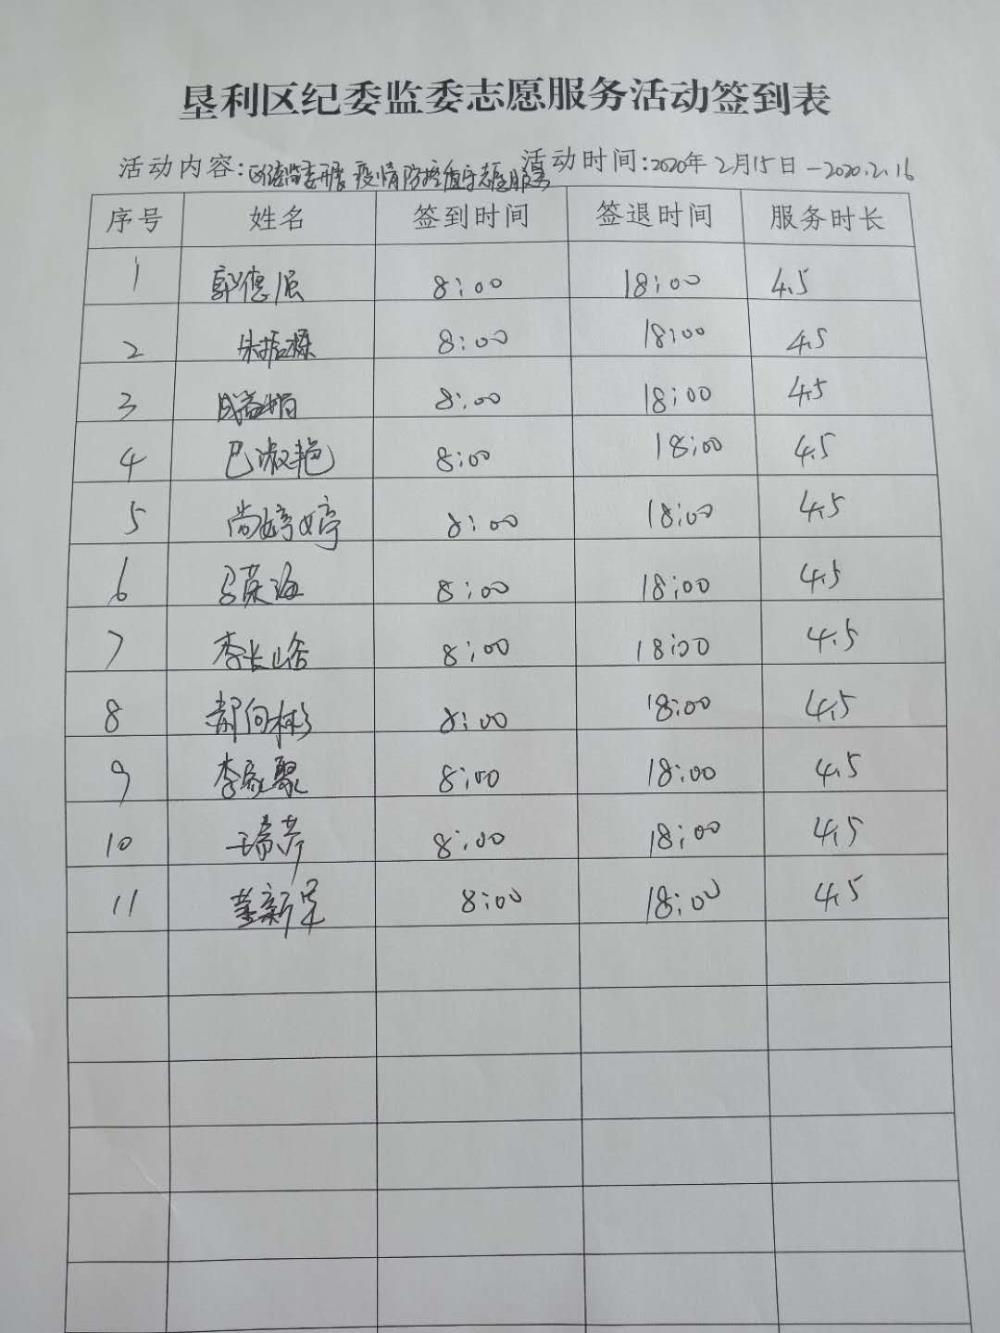 垦利区纪委监委志愿服务活动签到表
活动内容:区纪委监委开展疫情防控值守志愿服务 活动时间:2020年2月15日-2020.2.16
序号 姓名 签到时间 签退时间 服务时长
1 郭德 8:00 18:00 4.5
2 朱振栋 8:00 18:00 4.5
3 8:00 18:00 4.5
4 巴淑艳 8:00 18:00 4.5
5 尚婷婷 8:00 18:00 4.5
6 马荣海 8:00 18:00 4.5
7 李长峪 8:00 18:00 4.5
8 郝向彬 8:00 18:00 4.5
9 李家聚 8:00 18:00 4.5
10 王瑞芹 8:00 18:00 4.5
11 董新军 8:00 18:00 4.5